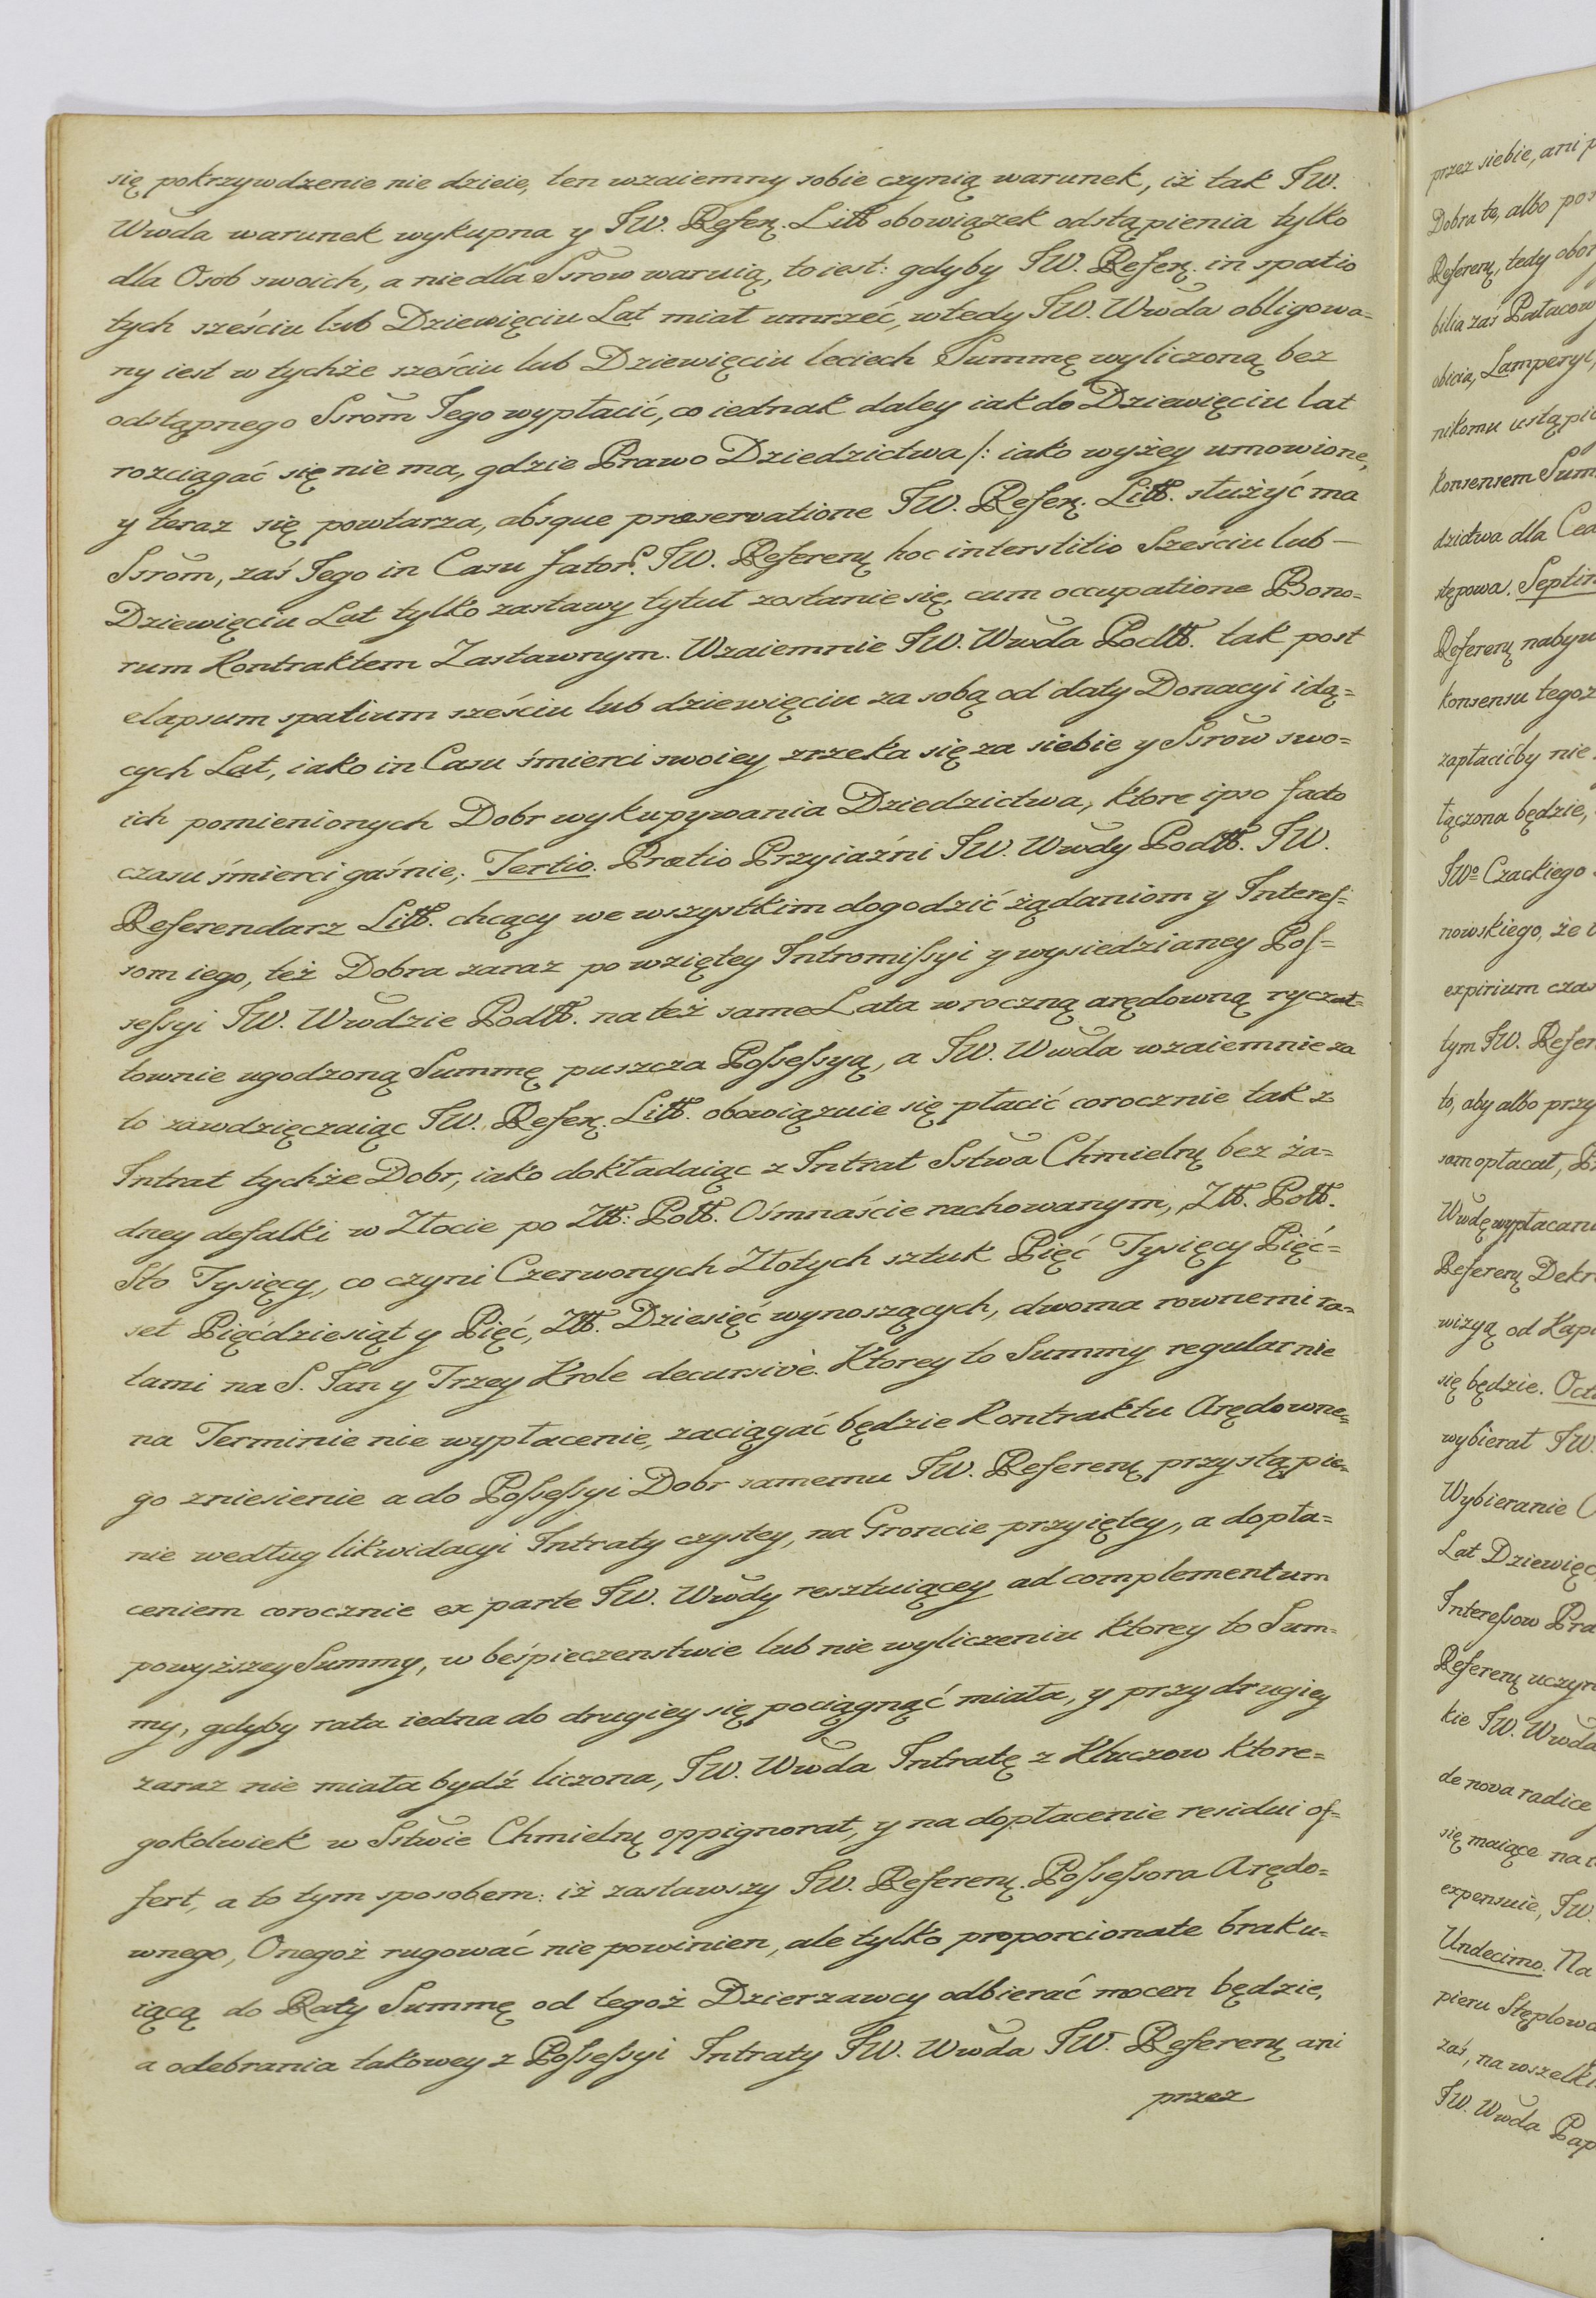 się pokrzywdzenie nie dzieie, ten wzaiemny sobie czynią warunek, iż tak JW.
Wwda warunek wykupna y JW. Referę. Litt obowiązek odstąpienia tylko
dla Osób swoich, a nie dla Ssrow waruią, to iest: gdyby JW. Referę. in spatio
tych sześciu lub Dziewięciu Lat miał umrzeć, wtedy JW. Wwda obligowa=
ny iest w tychże sześciu lub Dziewięciu leciech Summę wyliczoną bez
odstąpnego Ssrom Jego wypłacić, co iednak daley iak do Dziewięciu lat
rozciągać się nie ma, gdzie Prawo Dziedzictwa /: iako wyżey umowione,
y teraz się powtarza, absque præservatione JW. Referę. Litt. służyć ma
Ssrom, zaś Jego in Casu fator. JW. Referenę hoc interstitio Sześciu lub —
Dziewięciu Lat tylko zastawy tytuł zostanie się, cum occupatione Bono=
rum Kontraktem Zastawnym. Wzaiemnie JW. Wwda Podtt. tak post
elapsum spatium sześciu lub dziewięciu za sobą od daty Donacyi idą=
cych Lat, iako in Casu śmierci swoiey zrzeka się za siebie y Ssrow swo=
ich pomienionych Dobr wykupywania Dziedzictwa, ktore ipso facto
czasu śmierci gaśnie; Tertio. Prætio Przyiaźni JW. Wwdy Podtt. JW.
Referendarz Litt. chcący we wszystkim dogodzić żądaniom y Interes=
som iego, też Dobra zaraz po wziętey Intromissyi y wysiedzianey Pos=
sessyi JW. Wwdzie Podtt. na też same Lata w roczną arędowną ryczał=
townie ugodzoną Summę puszcza Possessyą, a JW. Wwda wzaiemnie za
to zawdzięczaiąc JW. Referę. Litt. obowiązuie się płacić corocznie tak z
Intrat tychże Dobr, iako dokładaiąc z Intrat Sstwa Chmielnę bez ża=
dney defalki w Złocie po Ztt: Poltt. Ośmnaście rachowanym, Ztt. Poltt.
Sto Tysięcy, co czyni Czerwonych Złotych sztuk Pięć Tysięcy Pięć=
set Pięćdziesiąt y Pięć, Ztt. Dziesięć wynoszących, dwoma rownemi ra=
tami na S. Jan y Trzey Krole decursivè. Ktorey to Summy regularnie
na Terminie nie wypłacenie, zaciągać będzie Kontraktu Arędowne=
go zniesienie a do Possessyi Dobr samemu JW. Referenę przystąpie=
nie według likwidacyi Intraty czystey, na Groncie przyiętey, a dopła=
ceniem corocznie ex parte JW. Wwdy resztuiącey ad complementum
powyższey Summy, w beśpieczenstwie lub nie wyliczeniu ktorey to Sum=
my, gdyby rata iedna do drugiey się pociągnąć miała, y przy drugiey
zaraz nie miała bydź liczona, JW. Wwda Intratę z Kluczow ktore=
gokolwiek w Sstwie Chmielnę oppignorat, y na dopłacenie residui of=
fert, a to tym sposobem: iż zastawszy JW. Referenę. Possessora Arędo=
wnego, Onegoż rugować nie powinien, ale tylko proporcionate braku=
iącą do Raty Summę od tegoż Dzierzawcy odbierać mocen będzie,
a odebrania takowey z Possessyi Intraty JW. Wwda JW. Referenę ani
przez
przez siebie, ani
Dobra te, albo
Referenę, tedy
bilia zaś
obicia, Lamperyi,
nikomu
konsensem
dzictwa dla
stępowa.
Referenę
konsensu tegoż
zapłacićby nie
łączona będzie,
JWo Czackiego
nowskiego, że
expirium
tym JW.
to, aby albo
sam opłacał,
Wwdę
Referenę
wizyą od
się będzie.
wybierał JW.
Wybieranie
Lat
Interessow
Referenę
kie JW. Wwda
de nova radice
się maiące na
expensuie, JW.
Undecimo. Na
pieru
zaś, na
JW. Wwda